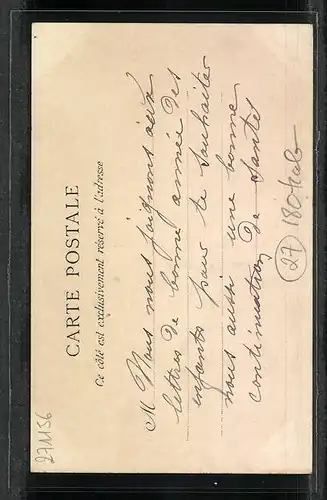 CARTE POSTALE
Ce côté est exclusivement réservé à l'adresse
M Nous nous joignons aux
lettres de bonne année des
enfants pour te souhaiter
nous aussi une bonne
continuation de santés
27 180
271156